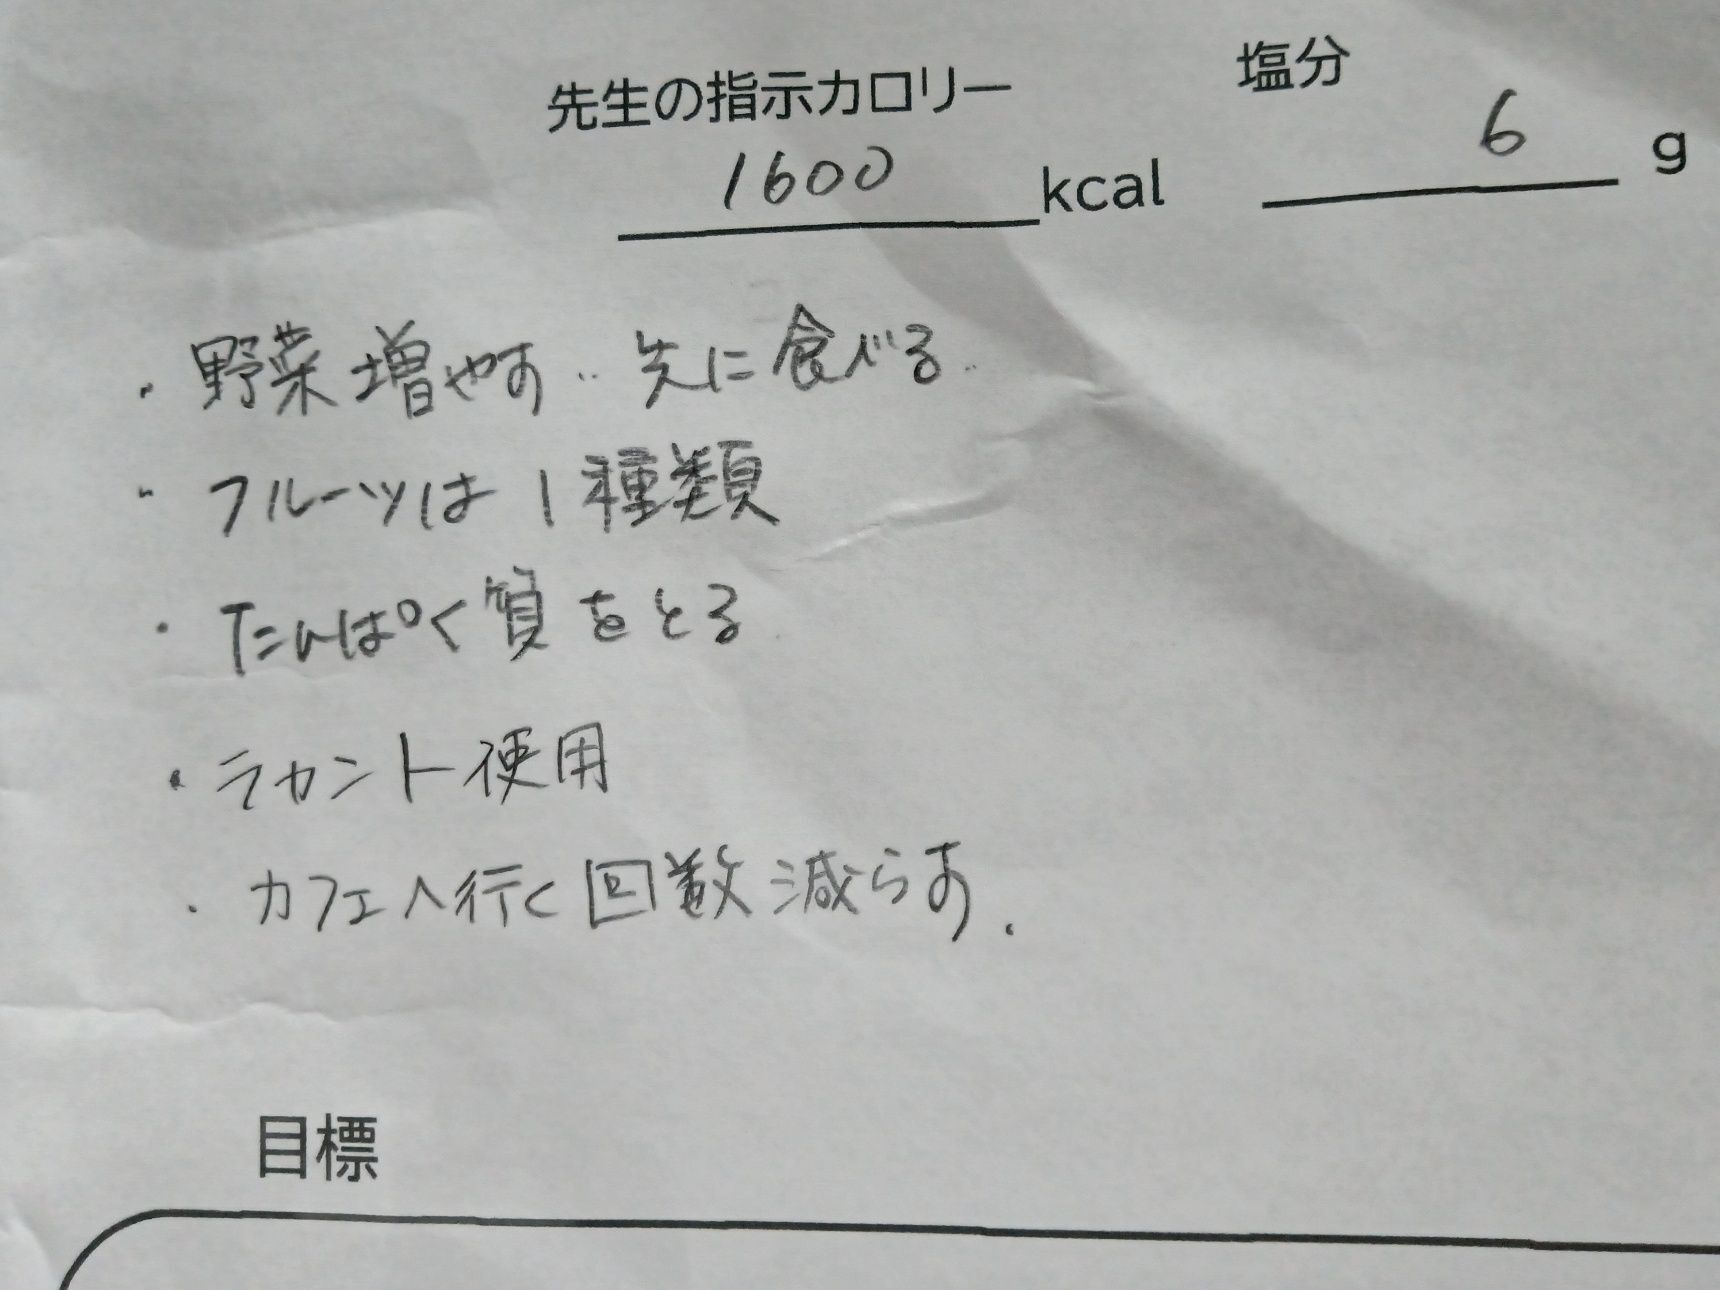 先生の指示カロリー 塩分
1600 kcal 6 g
・野菜増やす‥先に食べる‥
・フルーツは1種類
・たんぱく質をとる
・ラカント使用
・カフェへ行く回数減らす.
目標